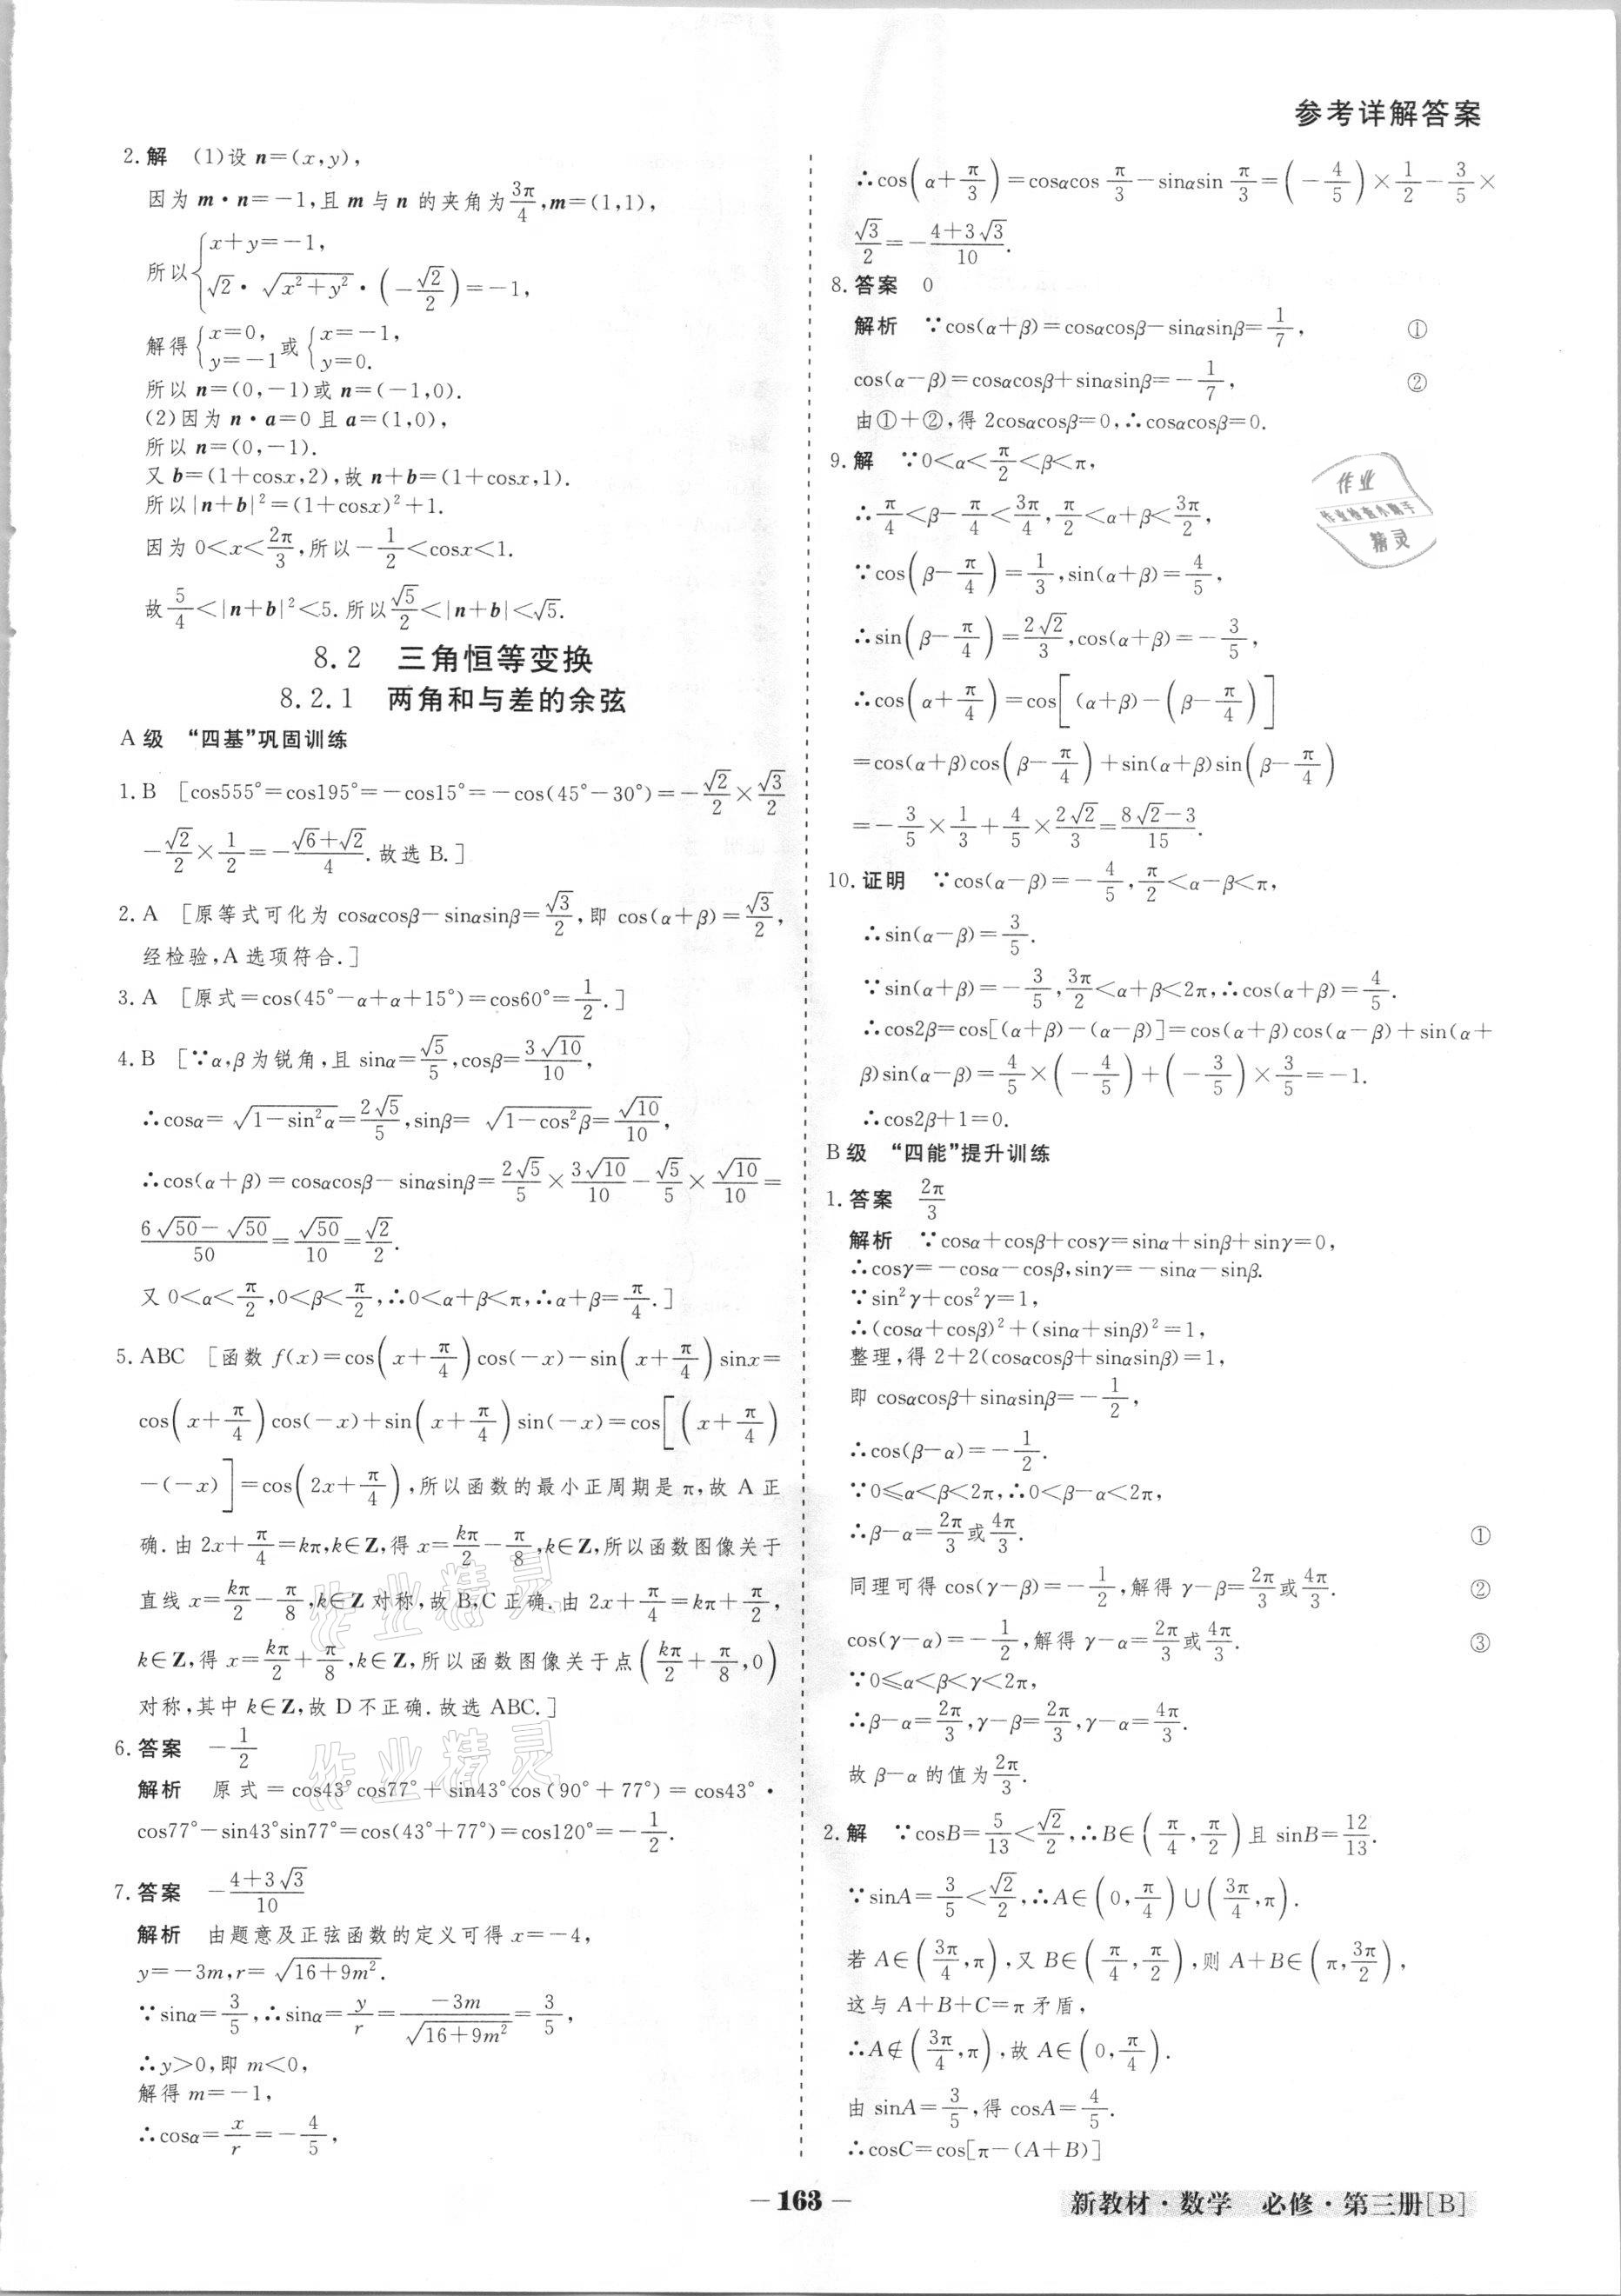 参考详解答案
2.解 (1)设 n=(x,y),
因为 m·n=-1,且 m 与 n 的夹角为3π/4,m=(1,1),
所以{x+y=-1,
√2·√(x²+y²)·(-√2/2)=-1,
解得{x=0, y=-1 或{x=-1, y=0.
所以 n=(0,-1)或 n=(-1,0).
(2)因为 n·a=0 且 a=(1,0),
所以 n=(0,-1).
又 b=(1+cosx,2),故 n+b=(1+cosx,1).
所以|n+b|²=(1+cosx)²+1.
因为 0<x<2π/3,所以-1/2<cosx<1.
故5/4<|n+b|²<5.所以√5/2<|n+b|<√5.
8.2 三角恒等变换
8.2.1 两角和与差的余弦
A 级 “四基”巩固训练
1.B [cos555°=cos195°=-cos15°=-cos(45°-30°)=-√2/2×√3/2
-√2/2×1/2=-(√6+√2)/4.故选 B.]
2.A [原等式可化为 cosαcosβ-sinαsinβ=√3/2,即 cos(α+β)=√3/2,
经检验,A 选项符合.]
3.A [原式=cos(45°-α+α+15°)=cos60°=1/2.]
4.B [∵α,β 为锐角,且 sinα=√5/5,cosβ=3√10/10,
∴cosα=√(1-sin²α)=2√5/5,sinβ=√(1-cos²β)=√10/10,
∴cos(α+β)=cosαcosβ-sinαsinβ=2√5/5×3√10/10-√5/5×√10/10=
(6√50-√50)/50=√50/10=√2/2.
又 0<α<π/2,0<β<π/2,∴0<α+β<π,∴α+β=π/4.]
5.ABC [函数 f(x)=cos(x+π/4)cos(-x)-sin(x+π/4)sinx=
cos(x+π/4)cos(-x)+sin(x+π/4)sin(-x)=cos[(x+π/4)
-(-x)]=cos(2x+π/4),所以函数的最小正周期是 π,故 A 正
确.由 2x+π/4=kπ,k∈Z,得 x=kπ/2-π/8,k∈Z,所以函数图像关于
直线 x=kπ/2-π/8,k∈Z 对称,故 B,C 正确.由 2x+π/4=kπ+π/2,
k∈Z,得 x=kπ/2+π/8,k∈Z,所以函数图像关于点(kπ/2+π/8,0)
对称,其中 k∈Z,故 D 不正确.故选 ABC.]
6.答案 -1/2
解析 原式=cos43°cos77°+sin43°cos(90°+77°)=cos43°·
cos77°-sin43°sin77°=cos(43°+77°)=cos120°=-1/2.
7.答案 -(4+3√3)/10
解析 由题意及正弦函数的定义可得 x=-4,
y=-3m,r=√(16+9m²).
∵sinα=3/5,∴sinα=y/r=-3m/√(16+9m²)=3/5,
∴y>0,即 m<0,
解得 m=-1,
∴cosα=x/r=-4/5,
∴cos(α+π/3)=cosαcosπ/3-sinαsinπ/3=(-4/5)×1/2-3/5×
√3/2=-(4+3√3)/10.
8.答案 0
解析 ∵cos(α+β)=cosαcosβ-sinαsinβ=1/7, ①
cos(α-β)=cosαcosβ+sinαsinβ=-1/7, ②
由①+②,得 2cosαcosβ=0,∴cosαcosβ=0.
9.解 ∵0<α<π/2<β<π,
∴π/4<β-π/4<3π/4,π/2<α+β<3π/2,
∵cos(β-π/4)=1/3,sin(α+β)=4/5,
∴sin(β-π/4)=2√2/3,cos(α+β)=-3/5,
∴cos(α+π/4)=cos[(α+β)-(β-π/4)]
=cos(α+β)cos(β-π/4)+sin(α+β)sin(β-π/4)
=-3/5×1/3+4/5×2√2/3=(8√2-3)/15.
10.证明 ∵cos(α-β)=-4/5,π/2<α-β<π,
∴sin(α-β)=3/5.
∵sin(α+β)=-3/5,3π/2<α+β<2π,∴cos(α+β)=4/5.
∴cos2β=cos[(α+β)-(α-β)]=cos(α+β)cos(α-β)+sin(α+
β)sin(α-β)=4/5×(-4/5)+(-3/5)×3/5=-1.
∴cos2β+1=0.
B 级 “四能”提升训练
1.答案 2π/3
解析 ∵cosα+cosβ+cosγ=sinα+sinβ+sinγ=0,
∴cosγ=-cosα-cosβ,sinγ=-sinα-sinβ.
∵sin²γ+cos²γ=1,
∴(cosα+cosβ)²+(sinα+sinβ)²=1,
整理,得 2+2(cosαcosβ+sinαsinβ)=1,
即 cosαcosβ+sinαsinβ=-1/2,
∴cos(β-α)=-1/2.
∵0≤α<β<2π,∴0<β-α<2π,
∴β-α=2π/3或4π/3. ①
同理可得 cos(γ-β)=-1/2,解得 γ-β=2π/3或4π/3. ②
cos(γ-α)=-1/2,解得 γ-α=2π/3或4π/3. ③
∵0≤α<β<γ<2π,
∴β-α=2π/3,γ-β=2π/3,γ-α=4π/3.
故 β-α 的值为2π/3.
2.解 ∵cosB=5/13<√2/2,∴B∈(π/4,π/2)且 sinB=12/13.
∵sinA=3/5<√2/2,∴A∈(0,π/4)∪(3π/4,π).
若 A∈(3π/4,π),又 B∈(π/4,π/2),则 A+B∈(π,3π/2),
这与 A+B+C=π 矛盾,
∴A∉(3π/4,π),故 A∈(0,π/4).
由 sinA=3/5,得 cosA=4/5.
∴cosC=cos[π-(A+B)]
作业
作业检查小助手
精灵
作业精灵
作业精灵
— 163 —
新教材·数学 必修·第三册[B]